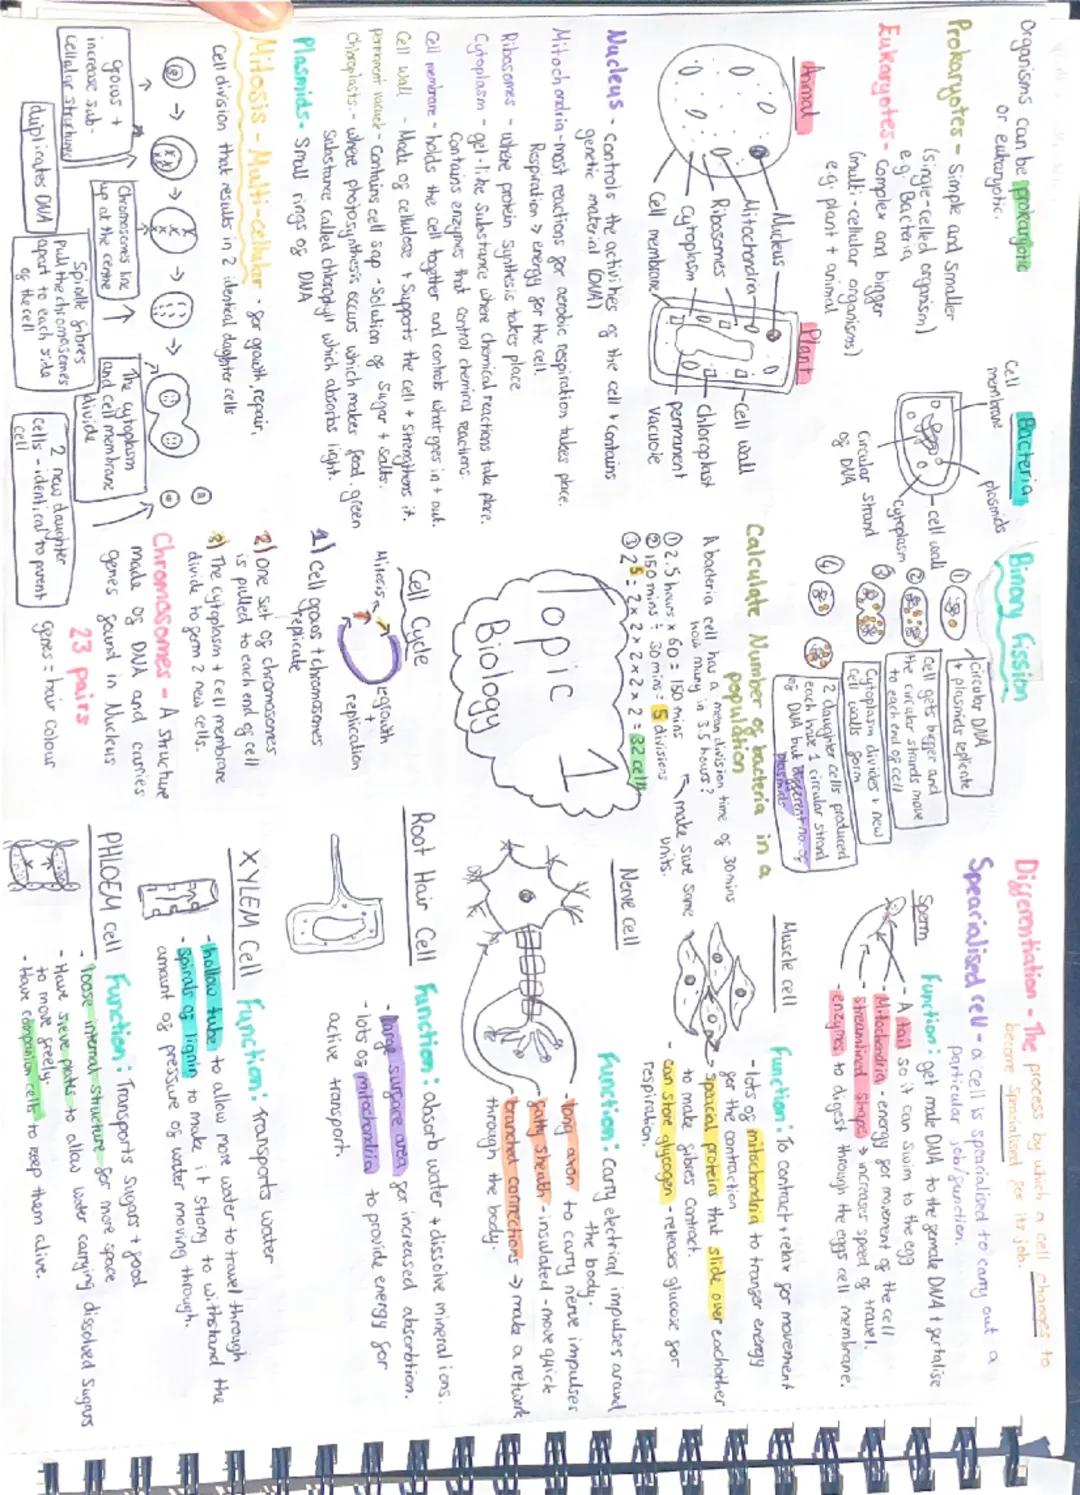 Organisms can be prokaryotic
or eukaryotic.
Prokaryotes - Simple and Smaller
(single-celled organism)
e.g. Bacteria
Eukaryotes - Complex and bigger
(multi-cellular organisms)
e.g. plant + animal
Animal
Plant
Nucleus
Mitochondria
Ribosomes
Cytoplasm
Cell membrane
Cell wall
chloroplast
permanent
vacuole
Nucleus - Controls the activities of the cell + Contains
genetic material (DNA)
Mitochondria - most reactions for aerobic respiration takes place.
Respiration → energy for the cell.
Ribosomes - where protein synthesis takes place
Cytoplasm - gel-like Substance where chemical reactions take place.
Contains enzymes that control chemical reactions.
Cell membrane - holds the cell together and controls what goes in + out.
Cell wall - Made of cellulose + Supports the cell + strengthens it.
permanent vacuole - Contains cell sap - Solution of Sugar + Salts.
chloroplasts - where photosynthesis occurs which makes food. green
Substance called chlorophyll which absorbs light.
Plasmids - Small rings of DNA
Mitosis - Multi-cellular - for growth, repair,
Cell division that results in 2 identical daughter cells
grows +
increase sub-
cellular structures
duplicates DNA
Chromosomes line
up at the centre
Spindle fibres
pull the chromosomes
apart to each side
of the cell
The cytoplasm
and cell membrane
divide
2 new daughter
cells - identical to parent
cell
Bacteria
Cell
membrane
plasmids
cell wall
cytoplasm
Circular strand
of DNA
Binary fission
① Circular DNA
+ plasmids replicate
② Cell gets bigger and
the circular strands move
to each end of cell
③ Cytoplasm divides + new
cell walls form
④ 2 daughter cells produced
each have 1 circular strand
of DNA but different no. of
plasmids
Calculate Number of bacteria in a
population
A bacteria cell has a mean division time of 30 mins
how many in 3.5 hours?
① 2.5 hours x 60 = 150 mins
② 150 mins ÷ 30 mins = 5 divisions
③ 2⁵ = 2 x 2 x 2 x 2 x 2 = 32 cells
make sure same
units.
Topic 1
Biology
Cell Cycle
growth
+
replication
Mitosis
1) Cell grows + chromosomes
replicate
2) One set of chromosomes
is pulled to each end of cell
3) The cytoplasm + cell membrane
divide to form 2 new cells.
Chromosomes - A structure
made of DNA and carries
genes found in Nucleus
23 pairs
genes = hair colour
Differentiation - The process by which a cell changes to
become Specialised for its job.
Spearialised cell - a cell is spearialised to carry out a
particular job/function.
Sperm
Function: get male DNA to the female DNA + fertalise
- A tail so it can swim to the egg
- Mitochondria - energy for movement of the cell
- streamlined shape → increases speed of travel.
- enzymes to digest through the eggs cell membrane.
Muscle cell
Function: To contract + relax for movement
- lots of mitochondria to tranfer energy
for the contraction
- spacical proteins that slide over eachother
to make fibres contract.
- can store glycogen - releases glucose for
respiration.
Nerve cell
Function: Carry electrical impulses around
the body.
- long axon to carry nerve impulses
- fatty sheath - insulated - move quick
- branched connections → make a network
through the body.
Root Hair Cell
Function: absorb water + dissolve mineral ions.
- large surface area for increased absorbtion.
- lots of mitochondria to provide energy for
active transport.
XYLEM Cell
Function: Transports water
- hollow tube to allow more water to travel through
- spirals of lignin to make it strong to withstand the
amount of pressure of water moving through.
PHLOEM Cell
Function: Transports Sugars + food
- loose internal structure for more space
- Have sieve plates to allow water carrying dissolved Sugars
to move freely.
- Have companion cells to keep them alive.